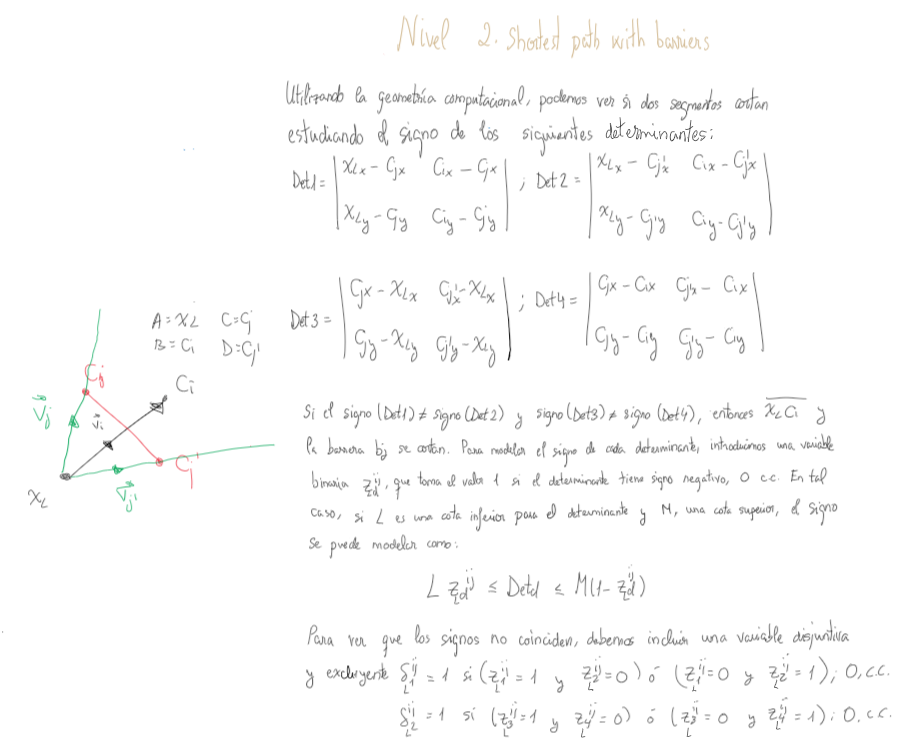 Nivel 2. Shortest path with barriers
Utilizando la geometría computacional, podemos ver si dos segmentos cortan
estudiando el signo de los siguientes determinantes:
Det1 = | X_Lx - Cjx   Cix - Cjx | ; Det2 = | X_Lx - Cj'x   Cix - Cj'x |
| X_Ly - Cjy   Ciy - Cjy |   | X_Ly - Cj'y   Ciy - Cj'y |
Det3 = | Cjx - X_Lx   Cj'x - X_Lx | ; Det4 = | Cjx - Cix   Cj'x - Cix |
| Cjy - X_Ly   Cj'y - X_Ly |   | Cjy - Ciy   Cj'y - Ciy |
A = X_L   C = Cj
B = Ci   D = Cj'
Cj
Ci
V⃗j
v⃗i
Cj'
V⃗j'
X_L
Si el signo (Det1) ≠ signo (Det2) y signo (Det3) ≠ signo (Det4), entonces X_L Ci y
la barrera bj se cortan. Para modelar el signo de cada determinante, introducimos una variable
binaria z_Ld^ij, que toma el valor 1 si el determinante tiene signo negativo, 0 c.c. En tal
caso, si L es una cota inferior para el determinante y M, una cota superior, el signo
se puede modelar como:
L z_Ld^ij ≤ Detd ≤ M(1 - z_Ld^ij)
Para ver que los signos no coinciden, debemos incluir una variable disjuntiva
y excluyente δ_L1^ij = 1 si (z_L1^ij = 1 y z_L2^ij = 0) ó (z_L1^ij = 0 y z_L2^ij = 1); 0, c.c.
δ_L2^ij = 1 si (z_L3^ij = 1 y z_L4^ij = 0) ó (z_L3^ij = 0 y z_L4^ij = 1); 0, c.c.